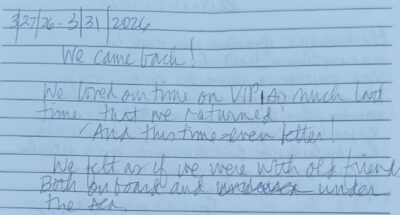 3|27|26 - 3|31|2026
We came back!
We loved our time on VIP so much last
time that we returned
And this time = even better!
We felt as if we were with old friends
Both on board and under
the sea.